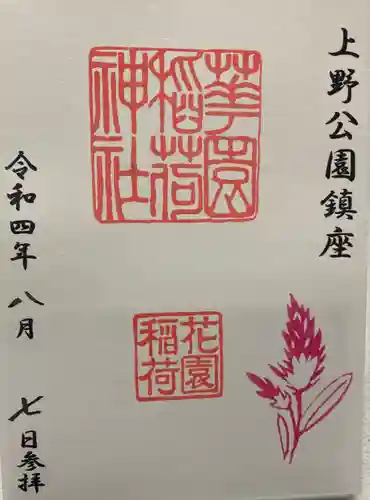 上野公園鎮座
華園
稲荷
神社
花園
稲荷
令和四年八月七日参拝